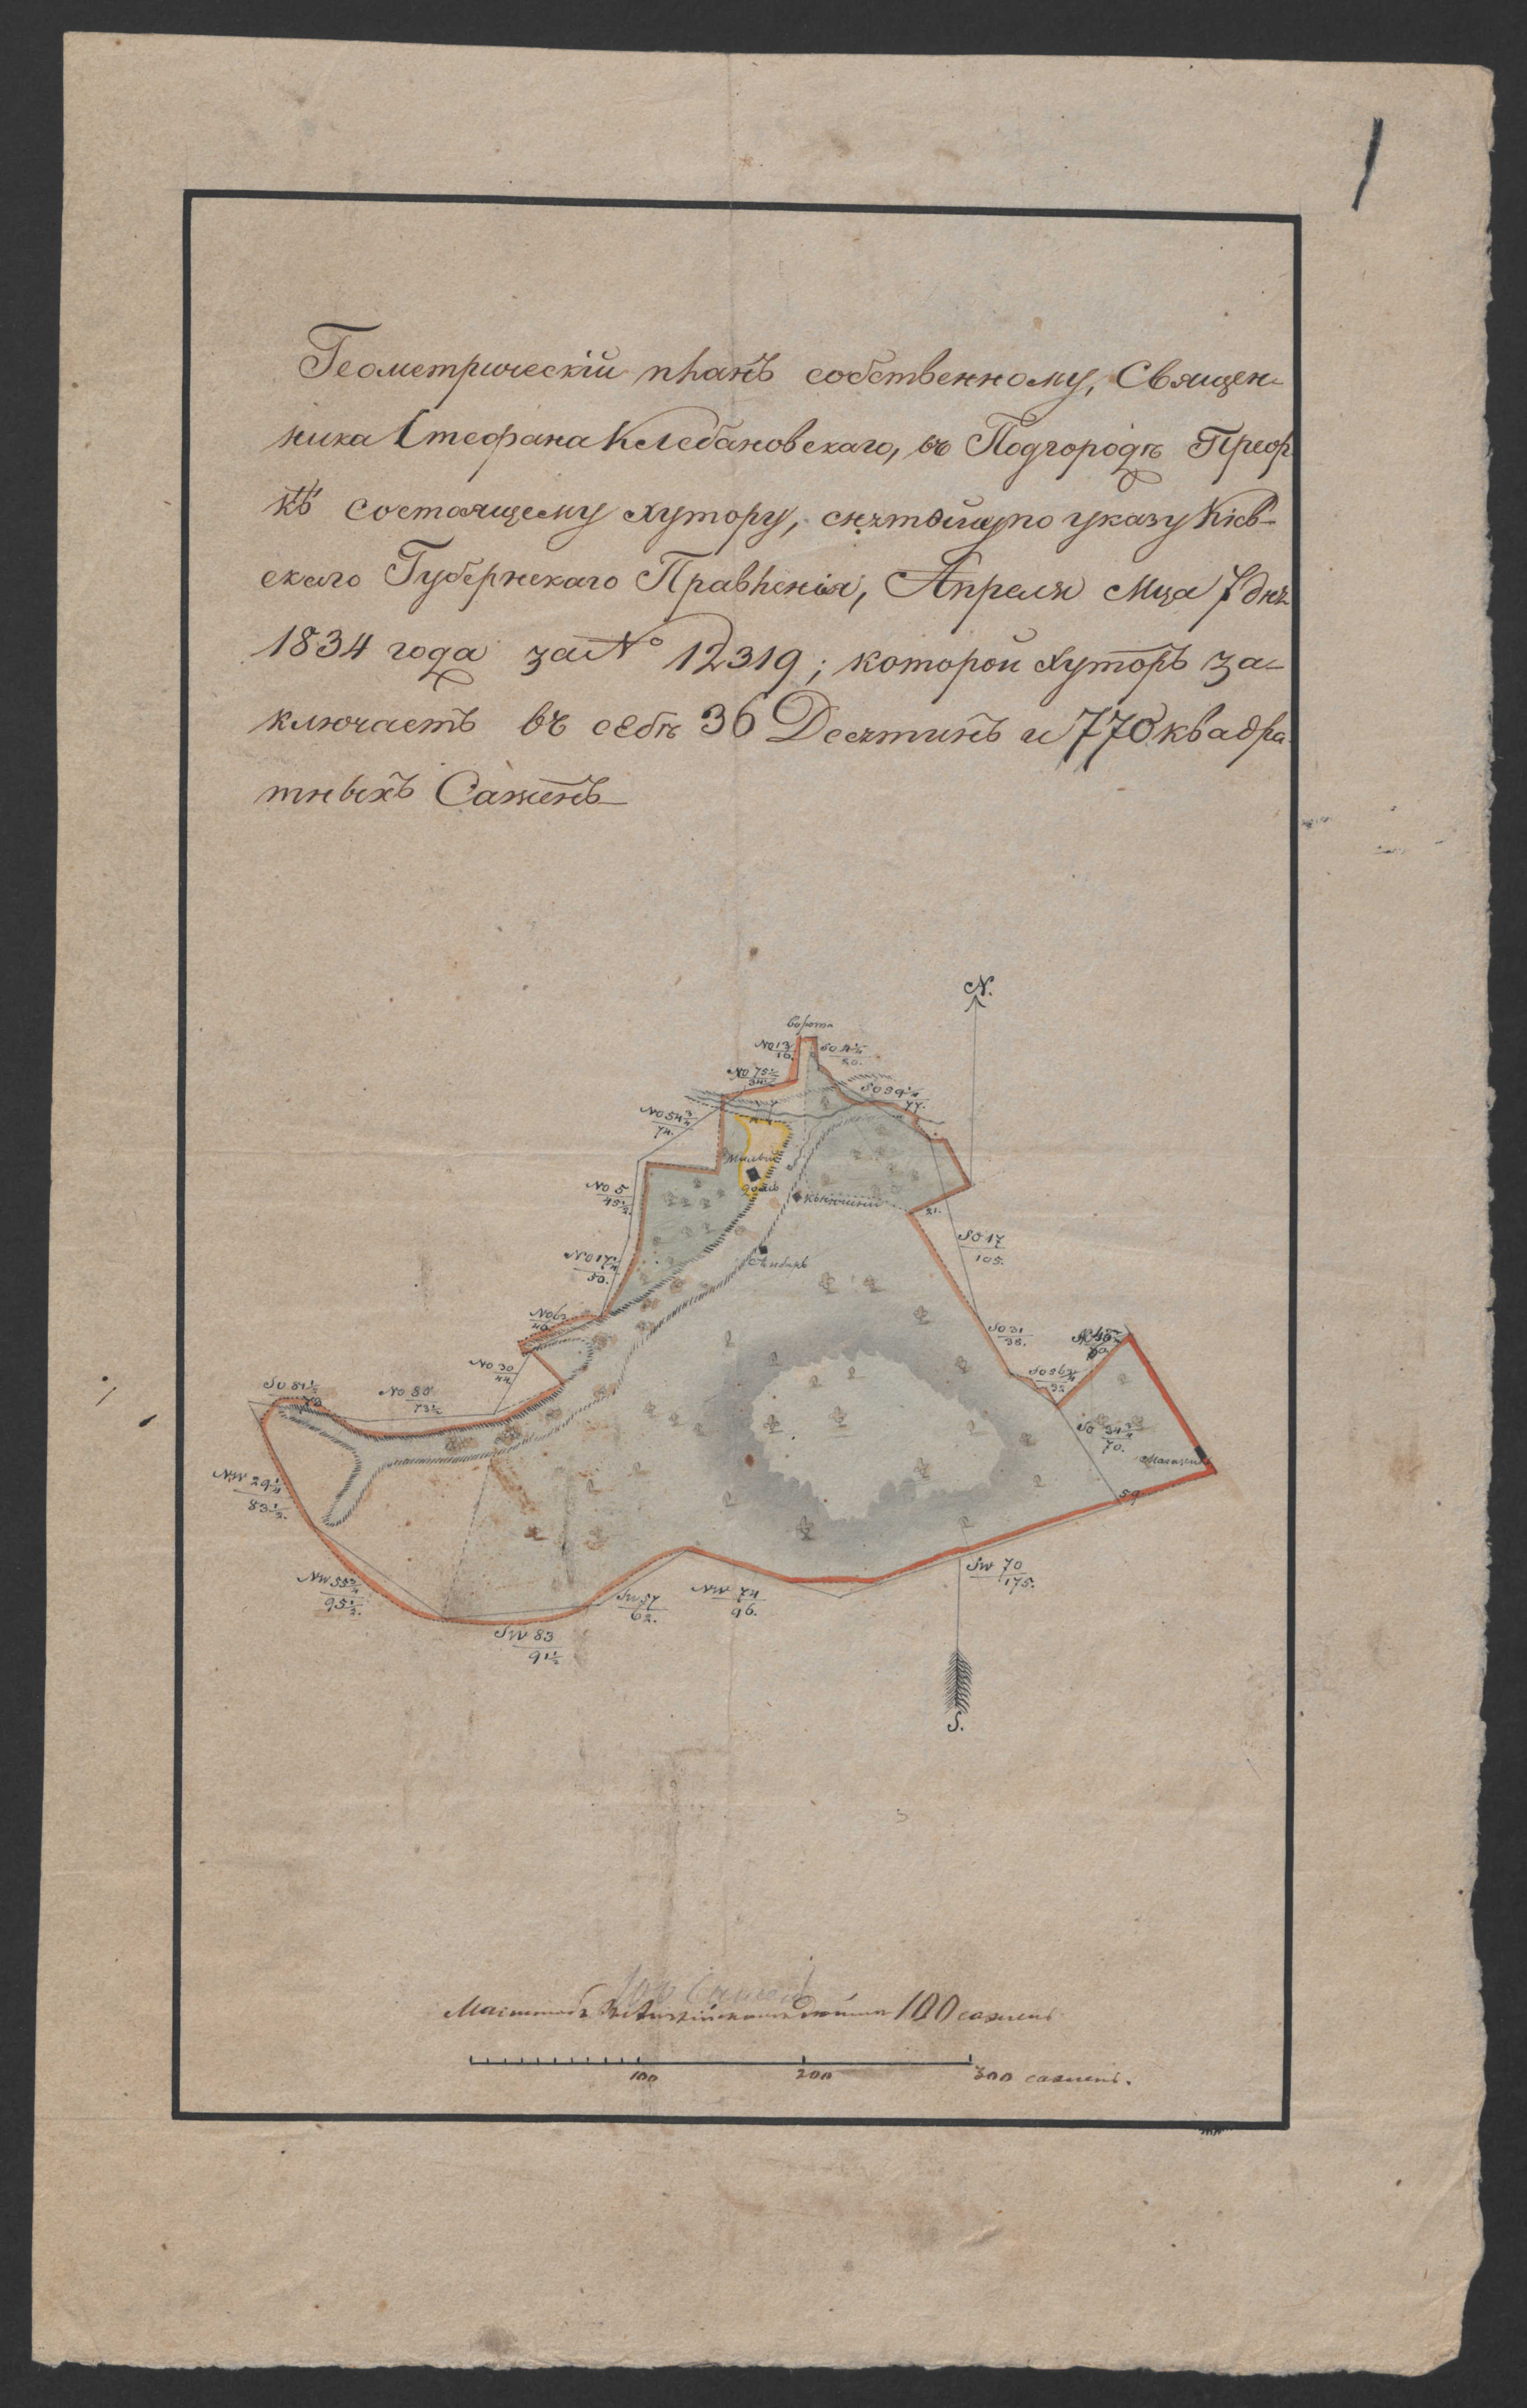 1
Геометрическій планъ собственному, Священ-
ника Стефана Клебановскаго, въ Подгородѣ Преор
кѣ состаящему хутору, снятой по указу Кіев-
скаго Губернскаго Правленія, Апреля Мца 7 дня
1834 года за № 12319; которой Хуторъ за-
ключаетъ въ себѣ 36 Десятинъ и 770 квадра
тныхъ Сажень
N.
ворота
NO 13
10.
SO 4¼
20.
NO 75½
34½
SO 59¼
77.
NO 54¾
74.
Жилый
домъ
NO 5
49½.
конюшни
21.
SO 17
105.
NO 17¼
50.
Амбаръ
NO 62
46
SO 31
38.
NO 30
44.
SO 81½
NO 88
73½
SO 34¾
70.
Магазинъ
59
NW 29¼
83½.
SW 70
175.
NW 55¾
95½.
SW 57
62.
NW 74
96.
SW 83
91½
S.
100 сажен
Масштабъ въ Англійскомъ дюйме 100 сажень
100 200 300 сажень.